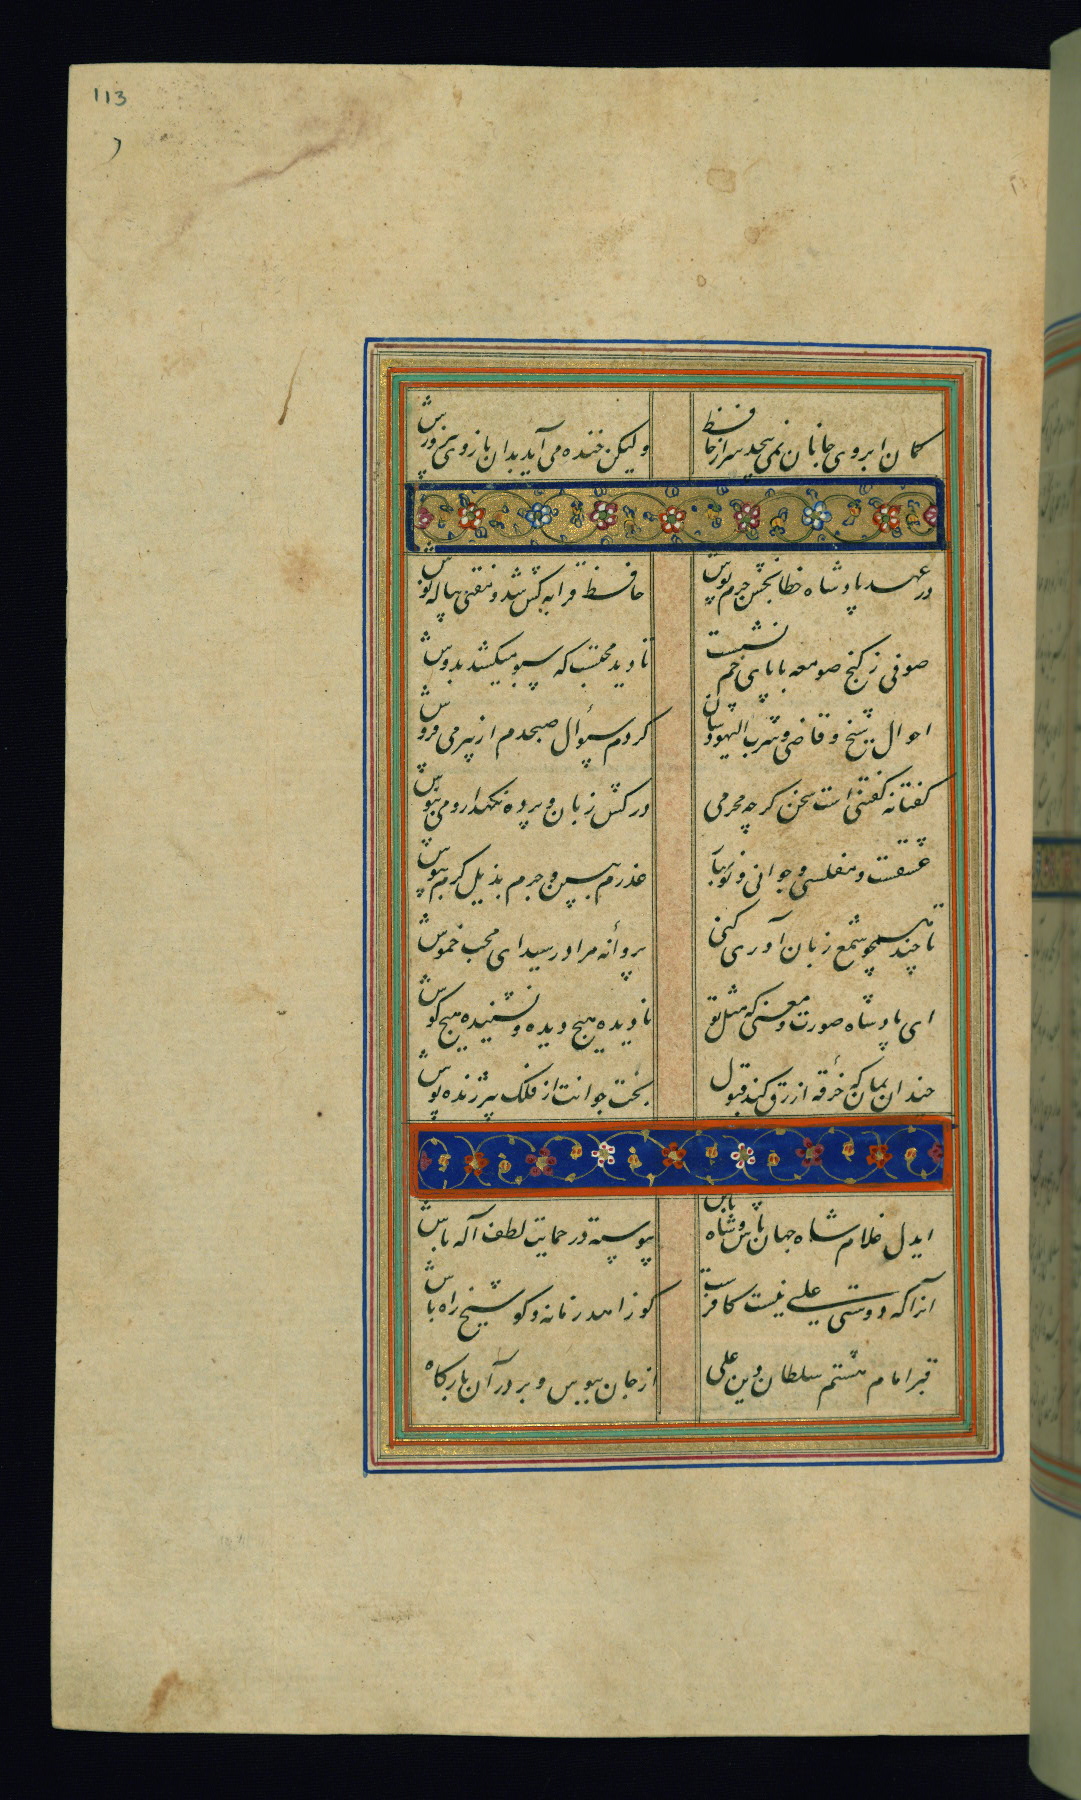 113
کمان ابروی جانان نمی پیچد سر از حافظ ولیکن خنده می آید بدان بازوی بی زورش
در عهد پادشاه خطابخش جرم پوش حافظ قرابه کش شد و مفتی پیاله نوش
صوفی ز کنج صومعه با پای خم نشست تا دید محتسب که سبو میکشد بدوش
احوال شیخ و قاضی و شرب الیهودشان کردم سؤال صبحدم از پیر می فروش
گفتا نه گفتنی است سخن گرچه محرمی درکش زبان و پرده نگهدار و می بنوش
عشقست و مفلسی و جوانی و نوبهار عذرم بپذیر و جرم بذیل کرم بپوش
تا چند همچو شمع زبان آوری کنی پروانه مراد رسید ای محب خموش
ای پادشاه صورت و معنی که مثل تو نادیده هیچ دیده و نشنیده هیچ گوش
چندان بمان که خرقه ازرق کند قبول بخت جوانت از فلک پیر ژنده پوش
ایدل غلام شاه جهان باش و شاه باش پیوسته در حمایت لطف اله باش
آنرا که دوستی علی نیست کافرست گو زاهد زمانه و گو شیخ راه باش
قبر امام هشتم سلطان دین علی از جان ببوس و بر در آن بارگاه